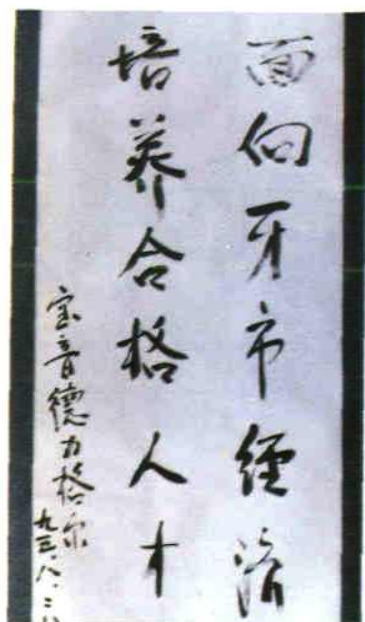 面向牙市经济
培养合格人才
宝音德力格尔
九三.八.二八